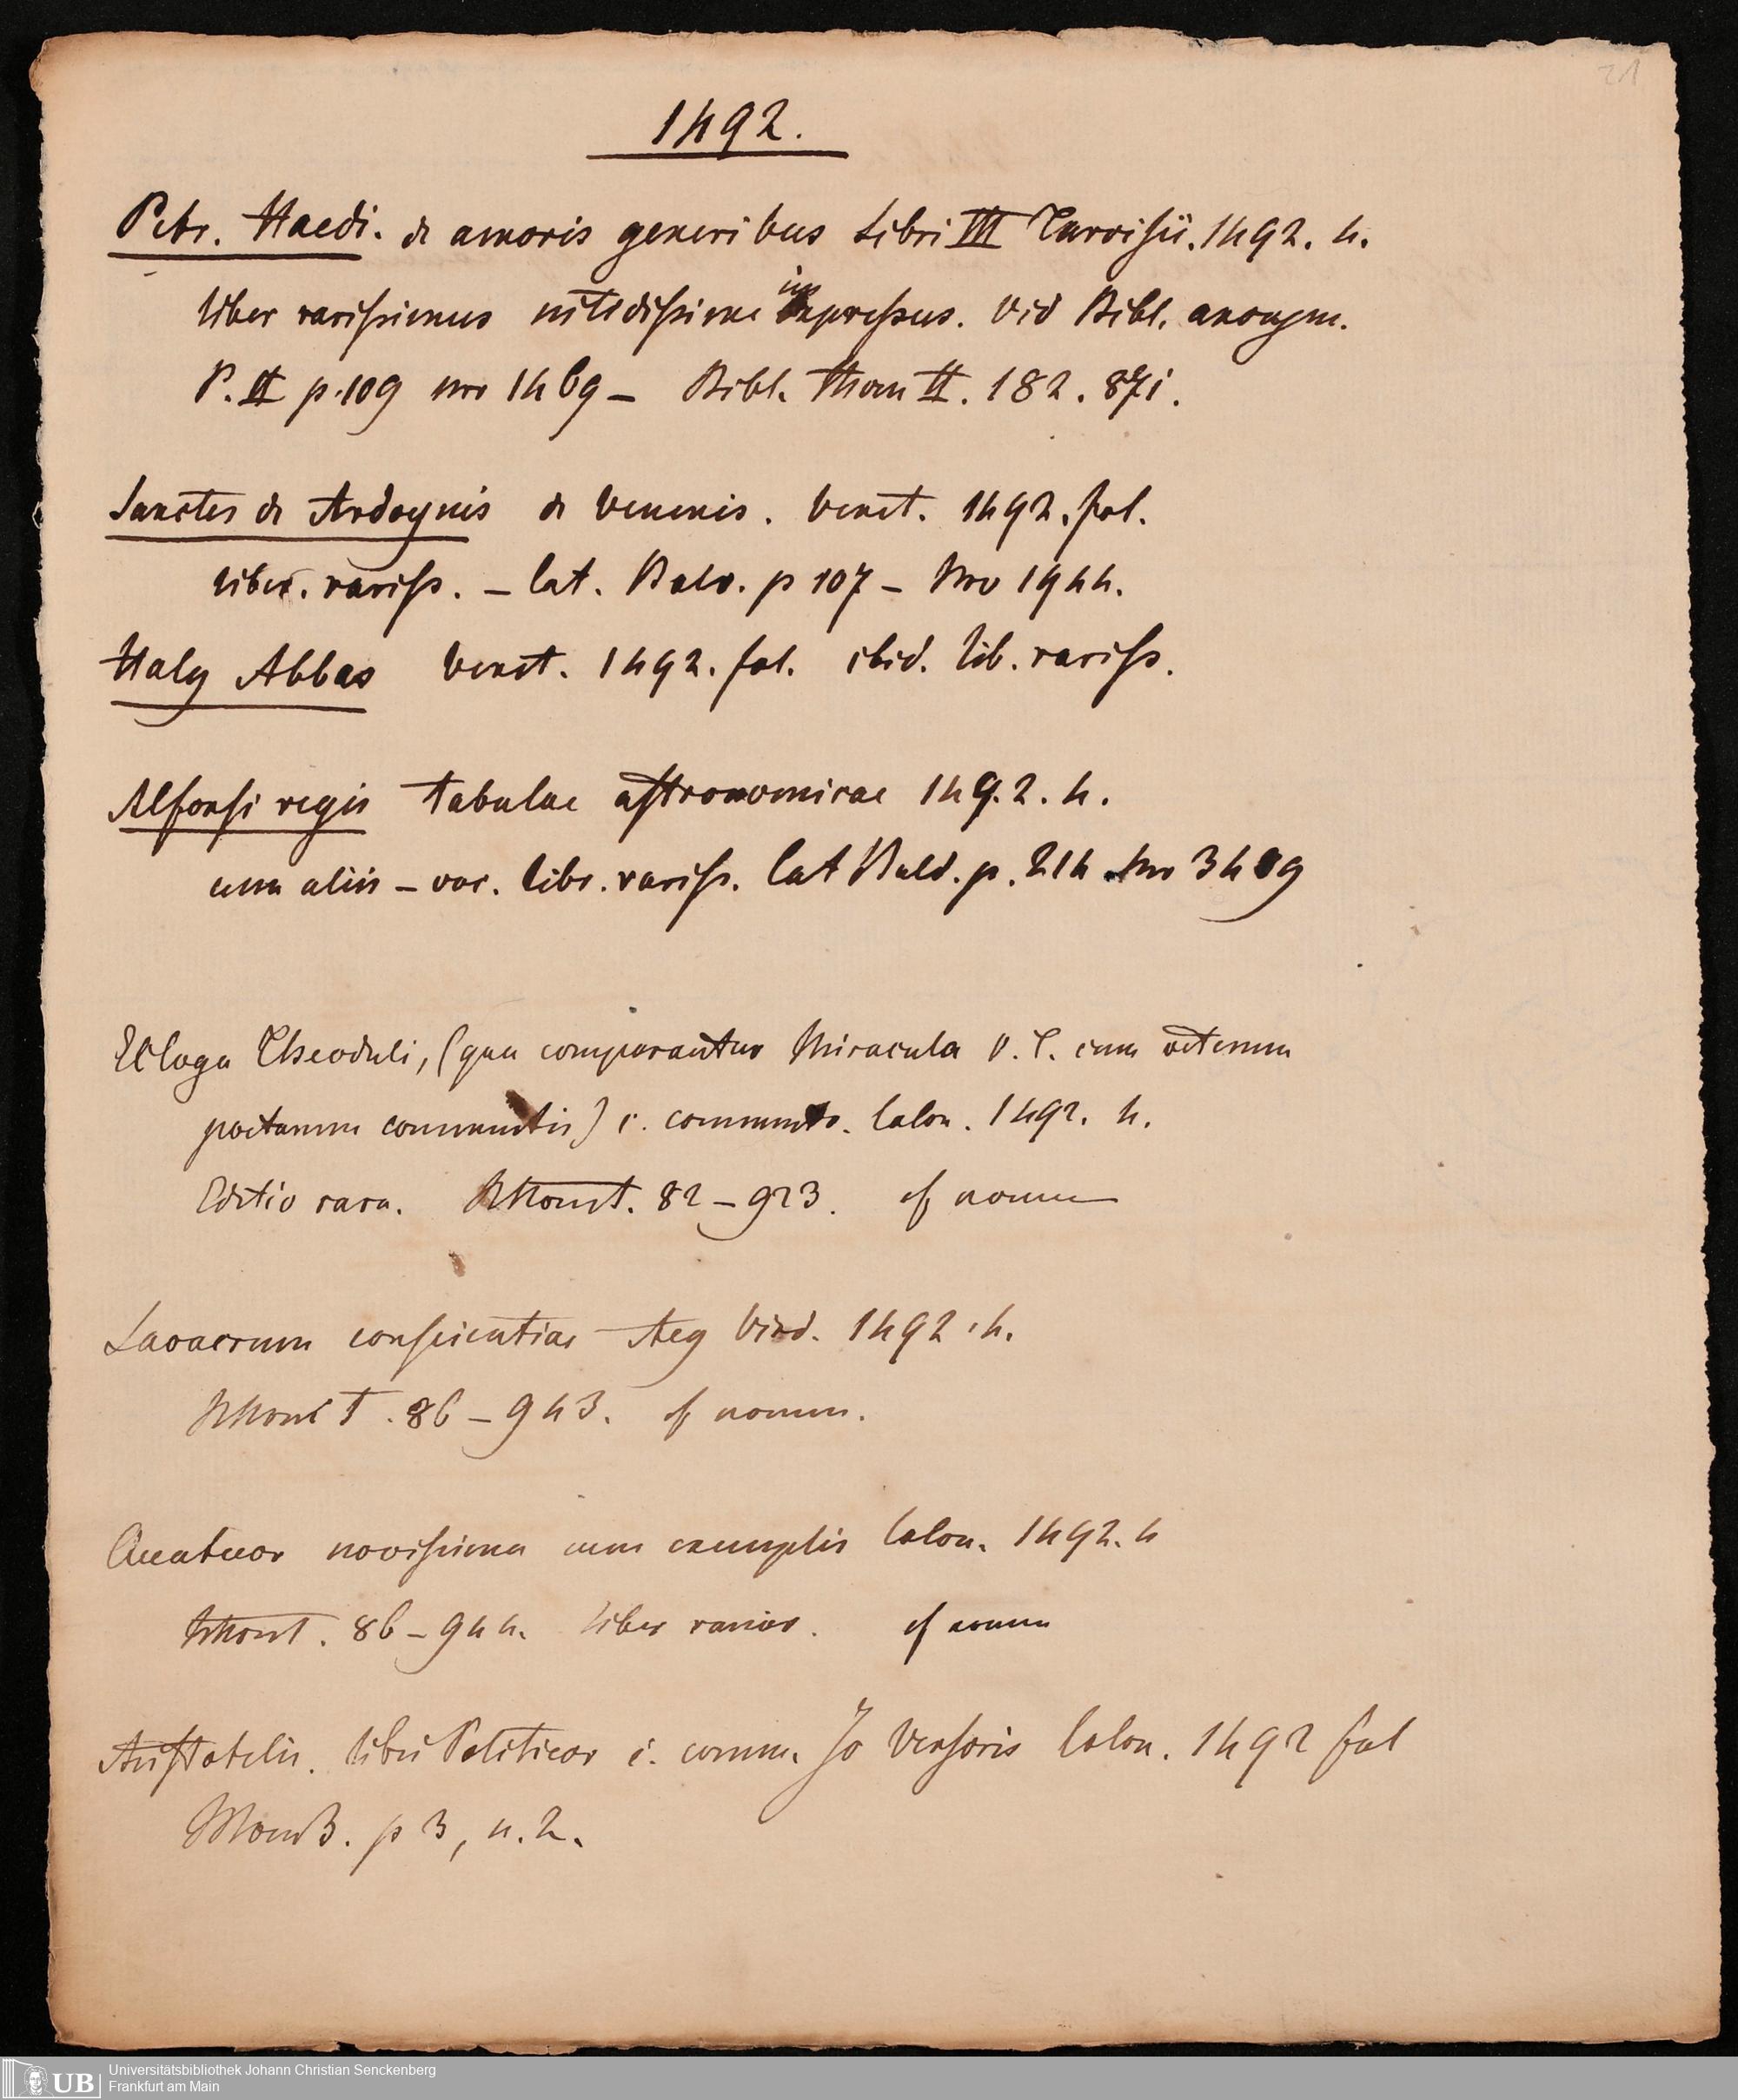 21
1492.
Petr. Haedi. de amoris generibus Libri III Tarvisii. 1492. 4.
liber rarissimus nitidissime impressus. Vid Bibl. anonym.
P. II p. 109 nro 1469 – Bibl. Thom II. 182. 871.
Sanctes de Ardoynis de Venenis. Venet. 1492. fol.
liber. rariss. – Cat. Bald. p 107 – Nro 1944.
Haly Abbas Venet. 1492. fol. ibid. lib. rariss.
Alfonsi regis tabulae astronomicae 149.2. 4.
cum aliis – voc. libr. rariss. Cat Bald. p. 214 Nro 3489
Ecloga Theoduli, (qua comparantur Miracula V. T. cum veterum
poetarum commentis) c. comment. Colon. 1492. 4.
Editio rara. 82 – 923.
Lavacrum conscientiae Aeg 1492. 4.
86 – 943.
Quatuor novissima cum exemplis Colon. 1492. 4
86 – 944. liber rarior.
Aristotelis. libri Politicor c. comm. Jo Versoris Colon. 1492 fol
p 3, n. 2.
Universitätsbibliothek Johann Christian Senckenberg
Frankfurt am Main
UB